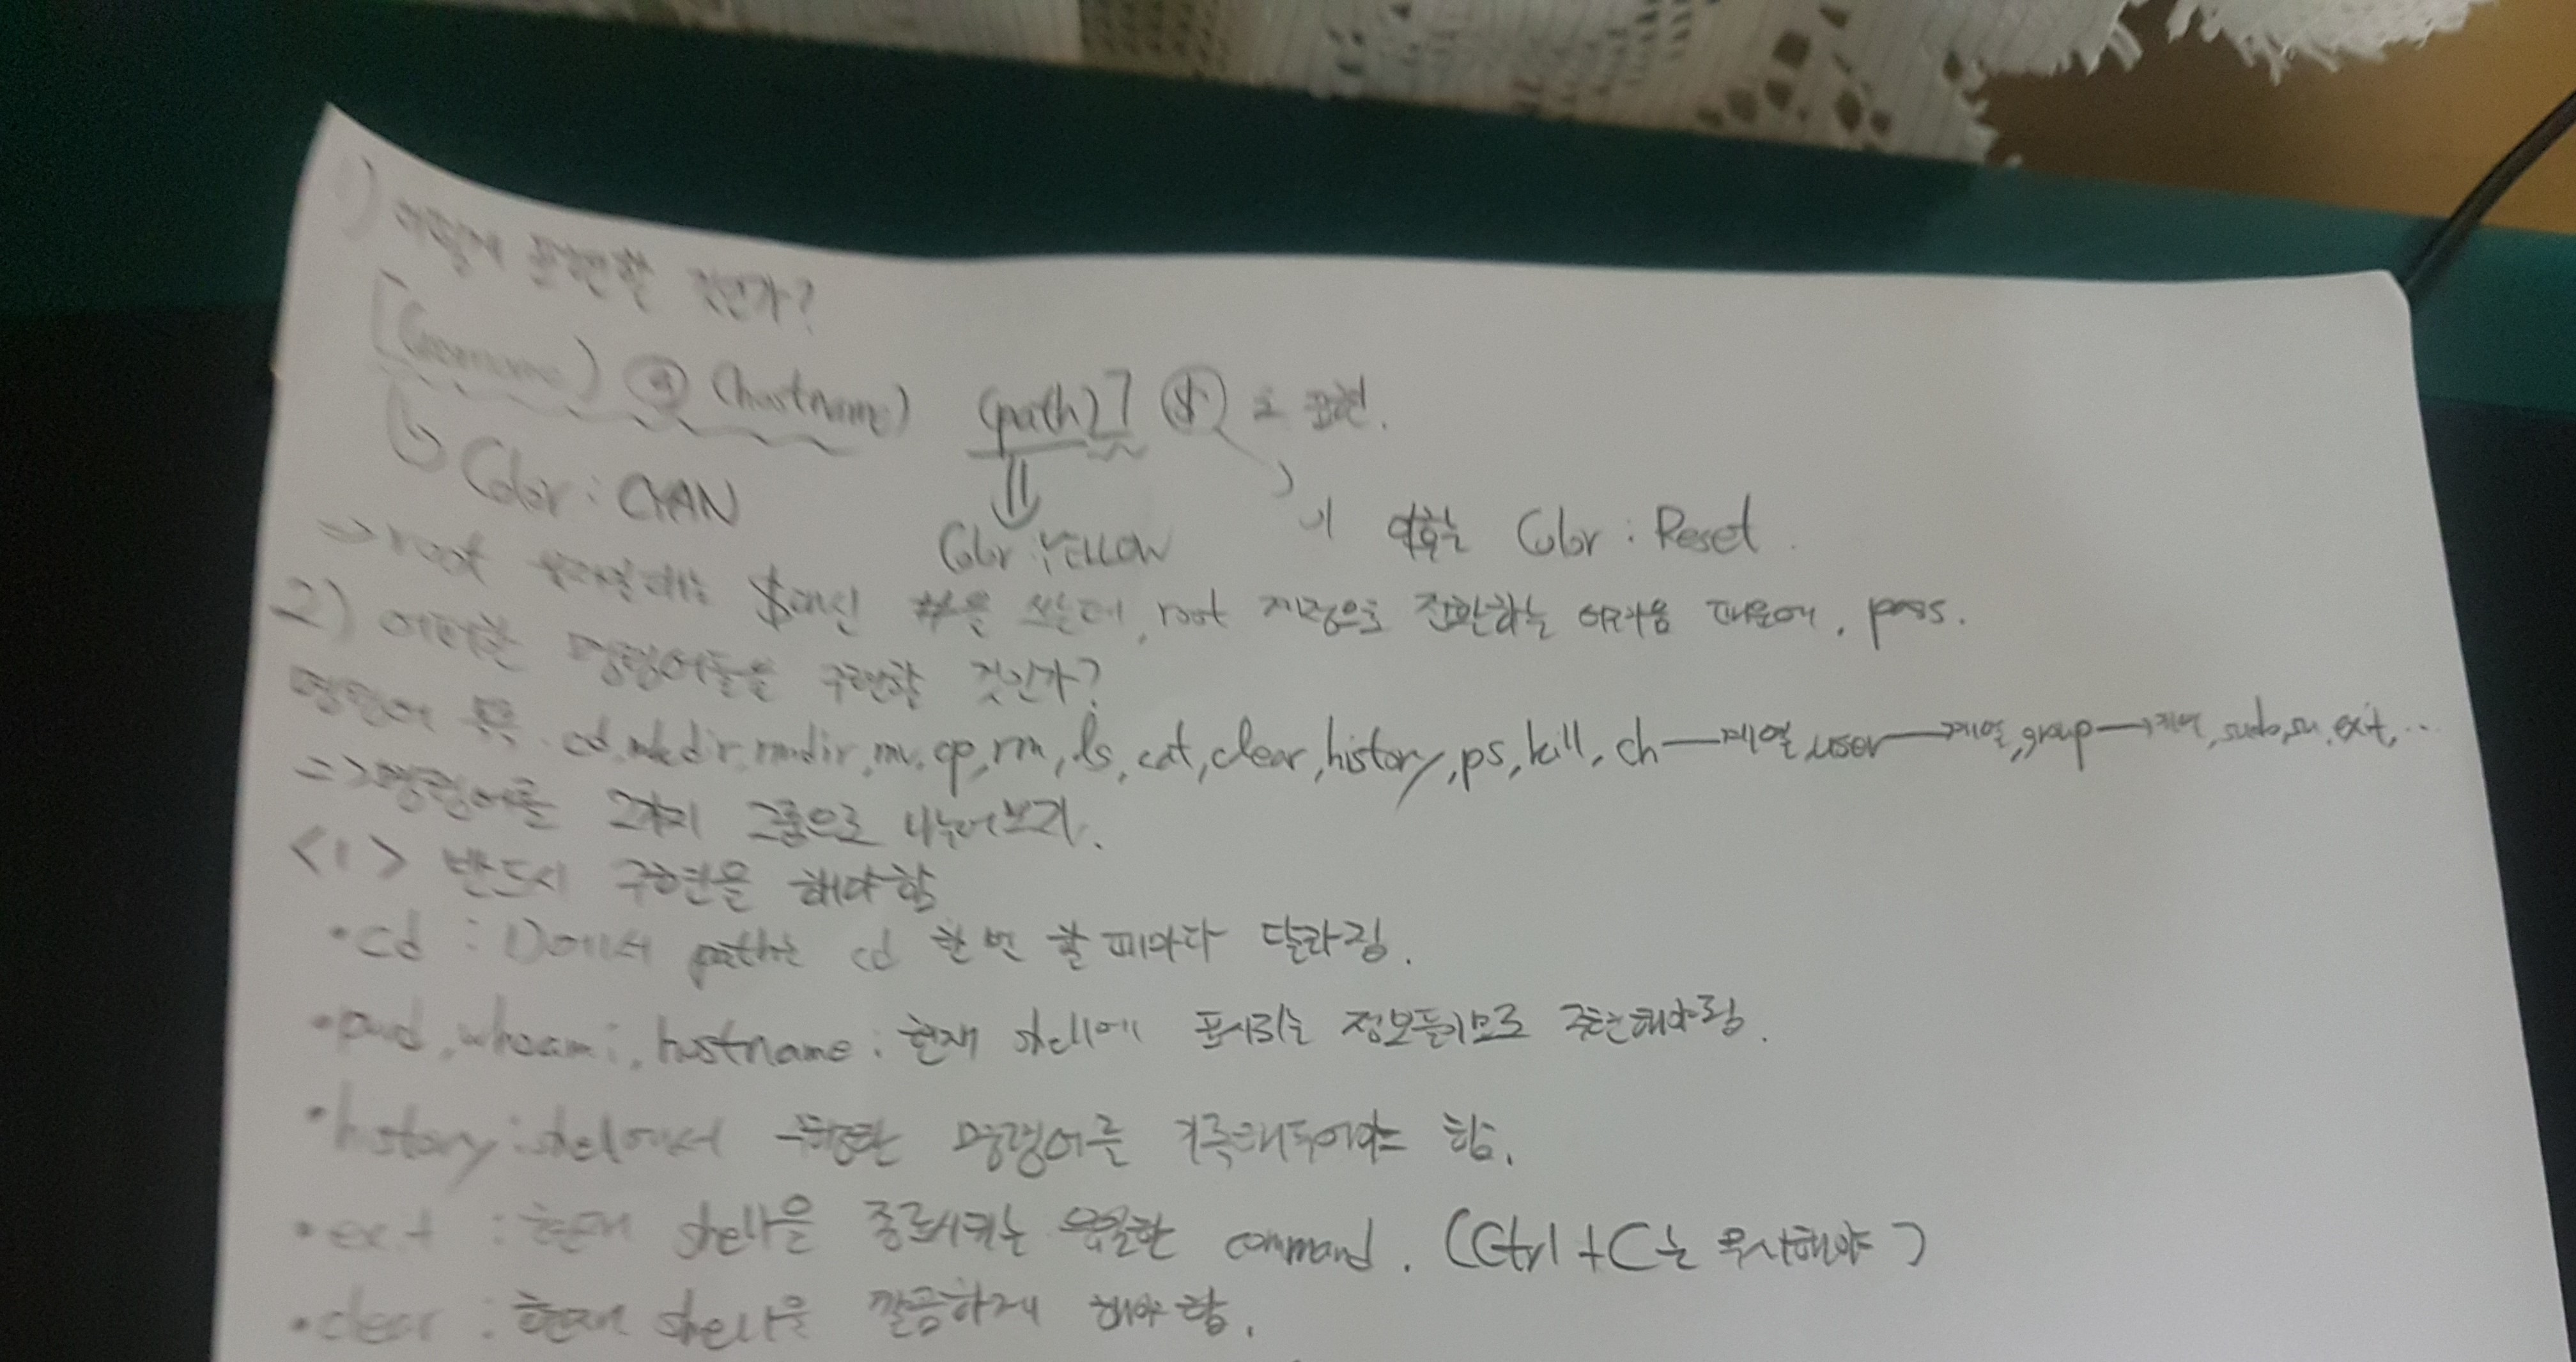 1) 어떻게 표현할 것인가?
[(username) @ (hostname) (path)] $ 로 표현.
Color : CYAN
Color : YELLOW
이 역할는 Color : Reset.
=> root 일때는 $대신 #을 쓰는데, root 계정으로 전환하는 어려움 때문에, pass.
2) 어떠한 명령어들을 구현할 것인가?
명령어 목록 : cd, mkdir, rmdir, mv, cp, rm, ls, cat, clear, history, ps, kill, ch—계열, user—계열, group—계열, sudo, su, exit, ...
=> 명령어를 2가지 그룹으로 나누어보자.
<1> 반드시 구현을 해야함
• cd : 1)에서 path는 cd 한 번 할 때마다 달라짐.
• pwd, whoami, hostname : 현재 shell에 표시되는 정보들이므로 구현해야함.
• history : shell에서 수행한 명령어를 기록해두어야 함.
• exit : 현재 shell을 종료시키는 유일한 command. (Ctrl+C는 무시해야)
• clear : 현재 shell을 깔끔하게 해야 함.